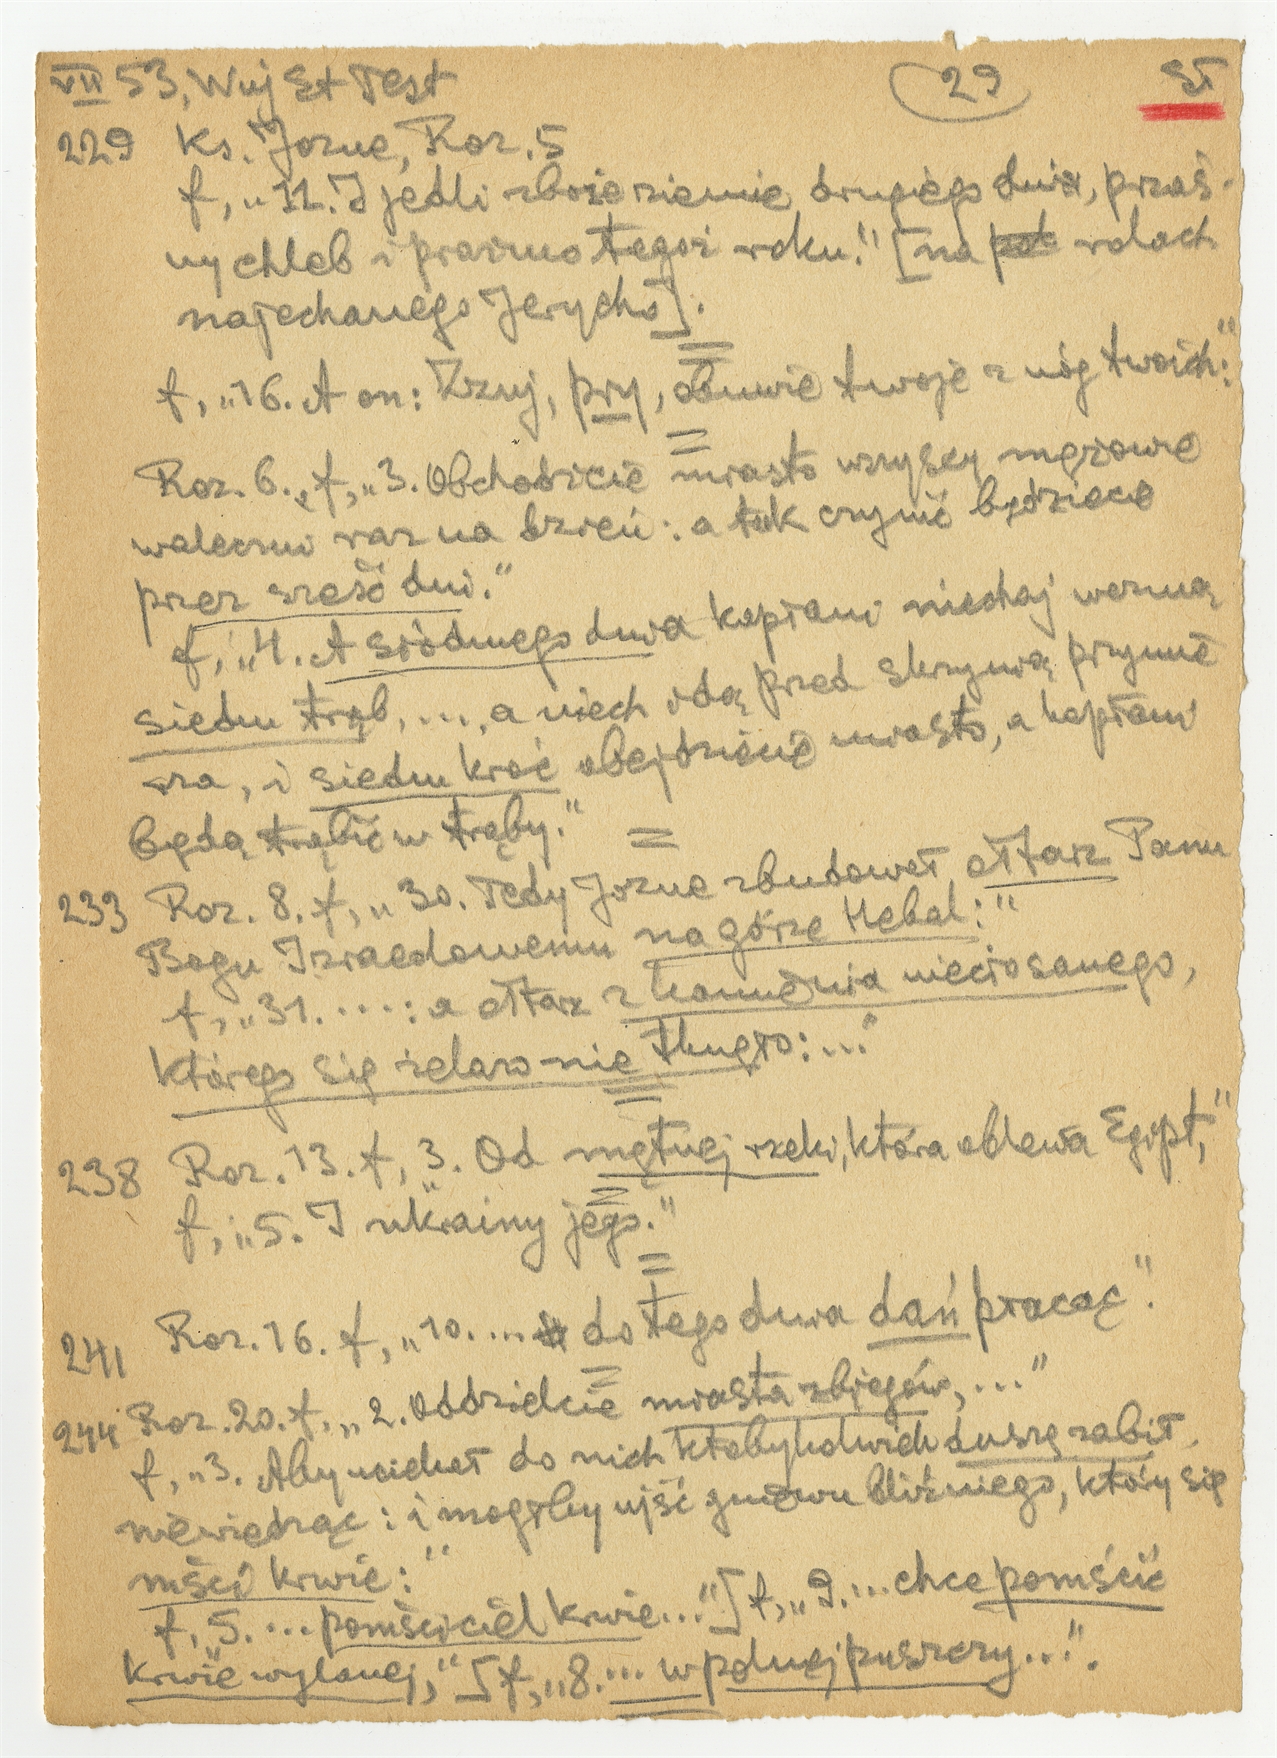 VII 53, Wuj St Test 29 ST
229 Ks. Jozue, Roz. 5
f, „11. I jedli zboże ziemie drugiego dnia, przaś-
ny chleb i prażmo tegoż roku." [na rolach
najechanego Jerycho].
f, „16. A on: Zzuj, pry, obuwie twoje z nóg twoich:"
Roz. 6., f, „3. Obchodźcie miasto wszyscy mężowie
waleczni raz na dzień: a tak czynić będziecie
przez sześć dni."
f, „4. A siódmego dnia kapłani niechaj wezmą
siedm trąb, ..., a niech idą przed skrzynią przymie
rza, i siedm kroć obejdziecie miasto, a kapłani
będą trąbić w trąby."
233 Roz. 8. f, „30. Tedy Jozue zbudował ołtarz Panu
Bogu Izraelowemu na górze Hebal:"
f, „31. ....: a ołtarz z kamienia nieciosanego,
którego się żelazo nie tknęło: ..."
238 Roz. 13. f, „3. Od mętnej rzeki, która oblewa Egipt,"
f, „5. I ukrainy jego."
241 Roz. 16. f, „10. ... do tego dnia dań płacąc".
244 Roz. 20. f, „2. Oddzielcie miasta zbiegów, ..."
f, „3. Aby uciekał do nich ktobykolwiek duszę zabił
niewiedząc: i mógłby ujść gniewu bliźniego, który się
mści krwie:"
f, „5. ... pomściciel krwie..."] f, „9. ... chce pomścić
krwie wylanej,"] f, „8. ... w polnej puszczy ...".